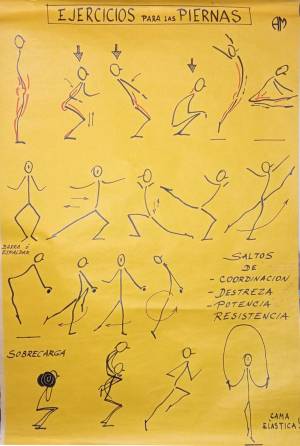 EJERCICIOS PARA LAS PIERNAS
AM
BARRA Ó
ESPALDAR
SALTOS
DE
- COORDINACION
- DESTREZA
- POTENCIA
RESISTENCIA
SOBRECARGA
CAMA
ELÁSTICA